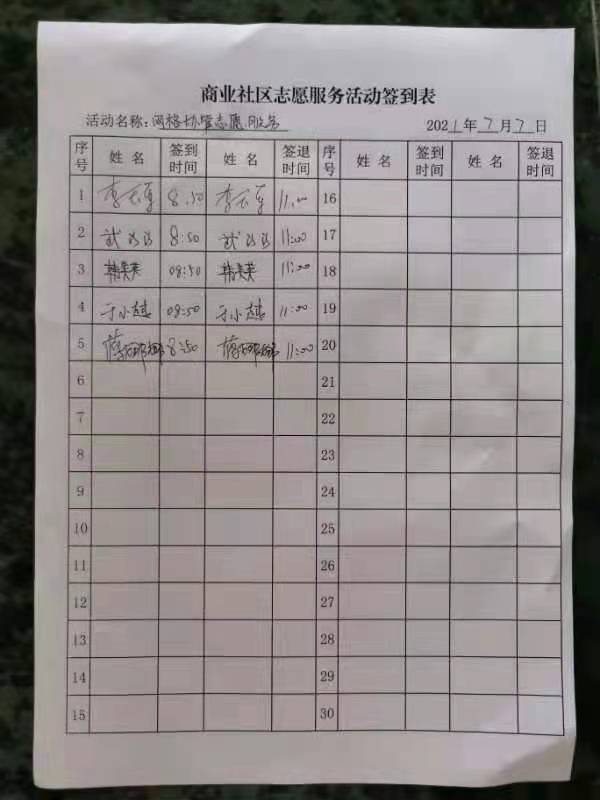 商业社区志愿服务活动签到表
活动名称：网格协管志愿服务 2021年7月7日
序号 姓名 签到时间 姓名 签退时间 序号 姓名 签到时间 姓名 签退时间
1 8:50 11:00 16
2 8:50 11:00 17
3 韩美英 08:50 韩美英 11:00 18
4 于小越 08:50 于小越 11:00 19
5 8:50 11:00 20
6 21
7 22
8 23
9 24
10 25
11 26
12 27
13 28
14 29
15 30